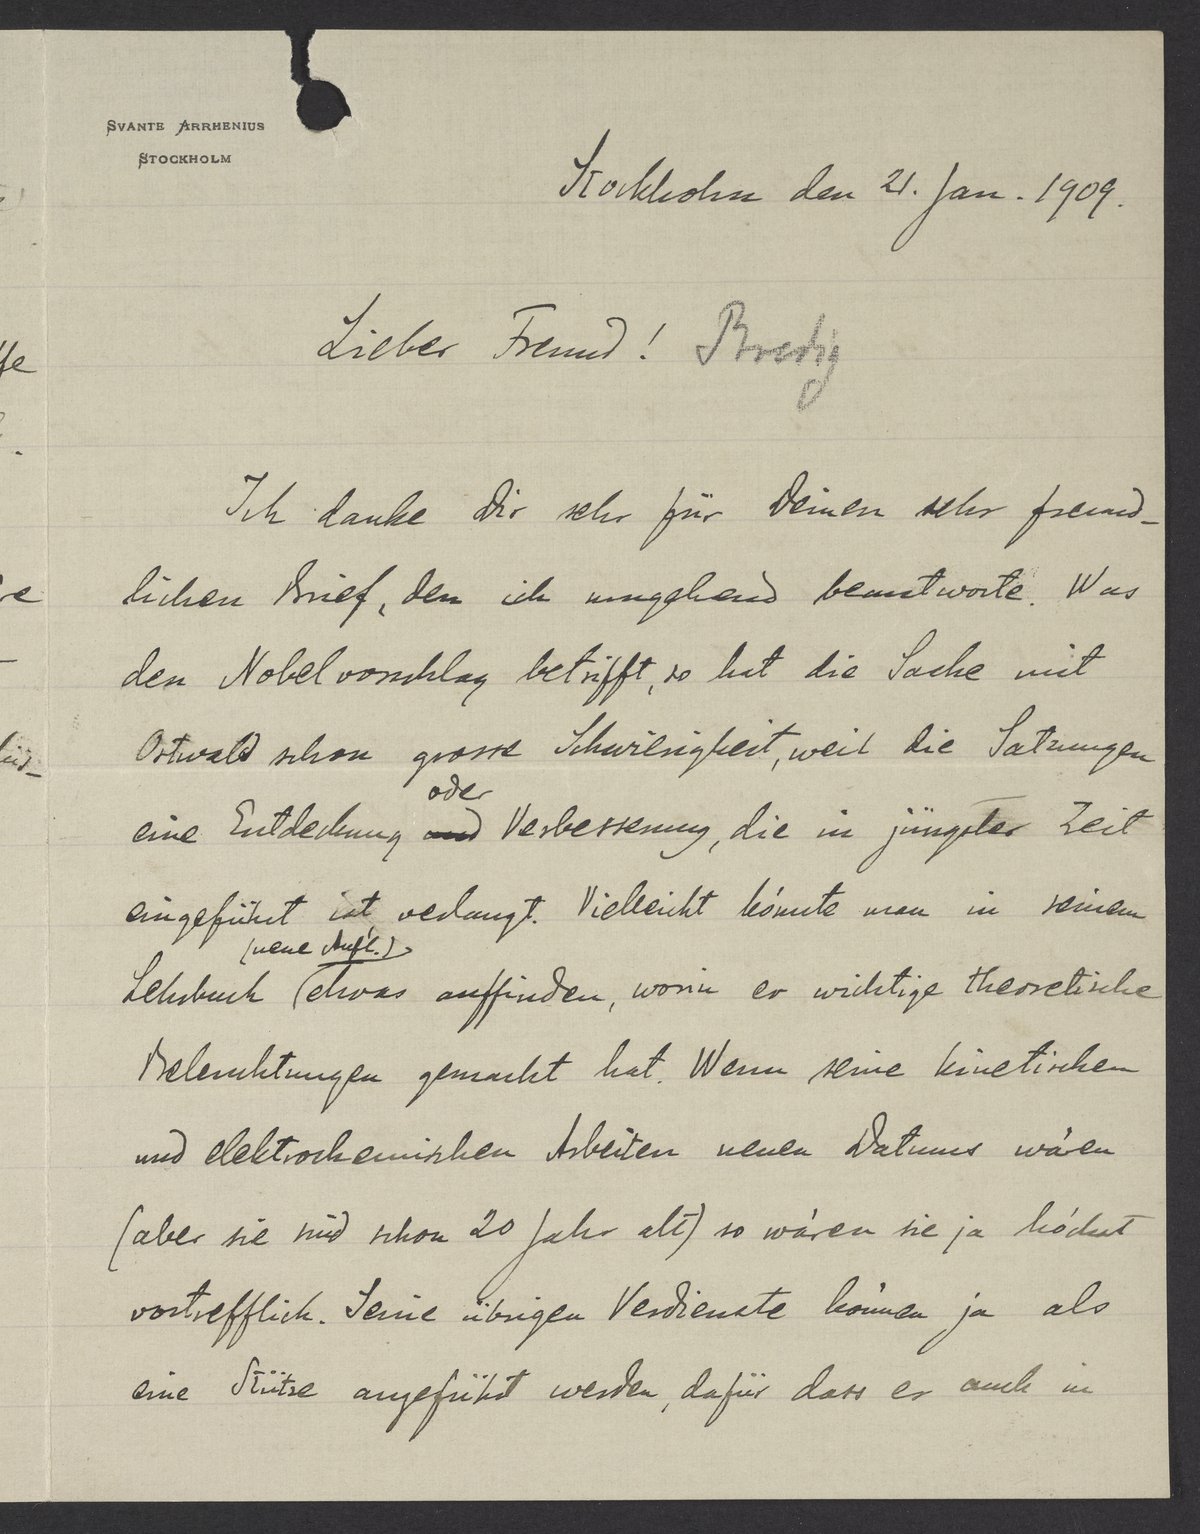 SVANTE ARRHENIUS
STOCKHOLM
Stockholm den 21. Jan. 1909.
Lieber Freund! Bredig
Ich danke Dir sehr für Deinen sehr freund-
lichen Brief, den ich umgehend beantworte. Was
den Nobelvorschlag betrifft, so hat die Sache mit
Ostwald schon grosse Schwierigkeit, weil die Satzungen
oder
eine Entdeckung und Verbesserung, die in jüngster Zeit
eingeführt ist, verlangt. Vielleicht könnte man in seinem
(neue Aufl.)
Lehrbuch (etwas auffinden, worin er wichtige theoretische
Beleuchtungen gemacht hat. Wenn seine kinetischen
und elektrochemischen Arbeiten neuen Datums wären
(aber sie sind schon 20 Jahr alt) so wären sie ja höchst
vortrefflich. Seine übrigen Verdienste können ja als
eine Stütze angeführt werden, dafür dass er auch in